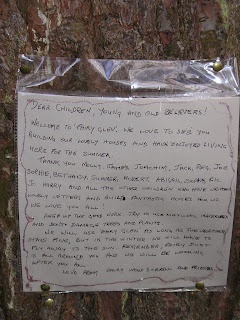 DEAR CHILDREN, YOUNG AND OLD BELIEVERS!
WELCOME TO FAIRY GLEN. WE LOVE TO SEE YOU
BUILDING OUR LOVELY HOUSES AND HAVE ENJOYED LIVING
HERE FOR THE SUMMER.
THANK YOU MOLLY, JAMES, JOACHIM, JACK, REG, JOE
SOPHIE, BETHANY, SUMMER, ROBERT, ABIGAIL,
HARRY AND ALL THE OTHER CHILDREN WHO HAVE WRITTEN
LOVELY LETTERS AND BUILT FANTASTIC HOUSES FOR US.
WE LOVE YOU ALL!
KEEP UP THE GOOD WORK. TRY TO USE NATURAL MATERIALS
AND DON'T DAMAGE TREES AND PLANTS.
WE WILL USE FAIRY GLEN AS LONG AS THE WEATHER
STAYS FINE, BUT IN THE WINTER WE WILL HAVE TO
FLY AWAY TO THE SUN. REMEMBER, FAIRY DUST
IS ALL AROUND YOU AND WE WILL BE LOOKING
AFTER YOU ALL.
LOVE FROM FAIRY